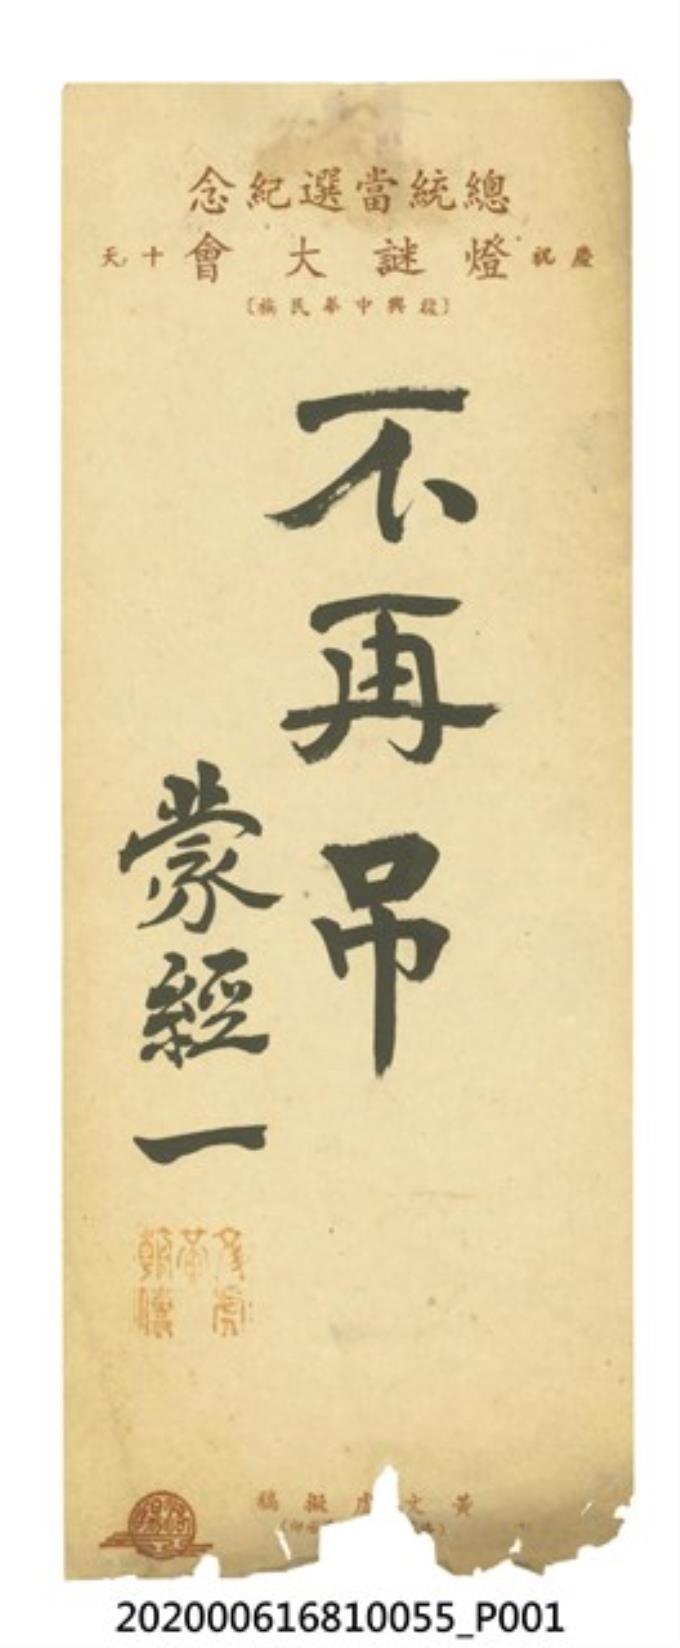 總統當選紀念
慶祝 燈謎大會 十天
〔復興中華民族〕
不再吊
蒙經一
黃文虎擬稿
202000616810055_P001